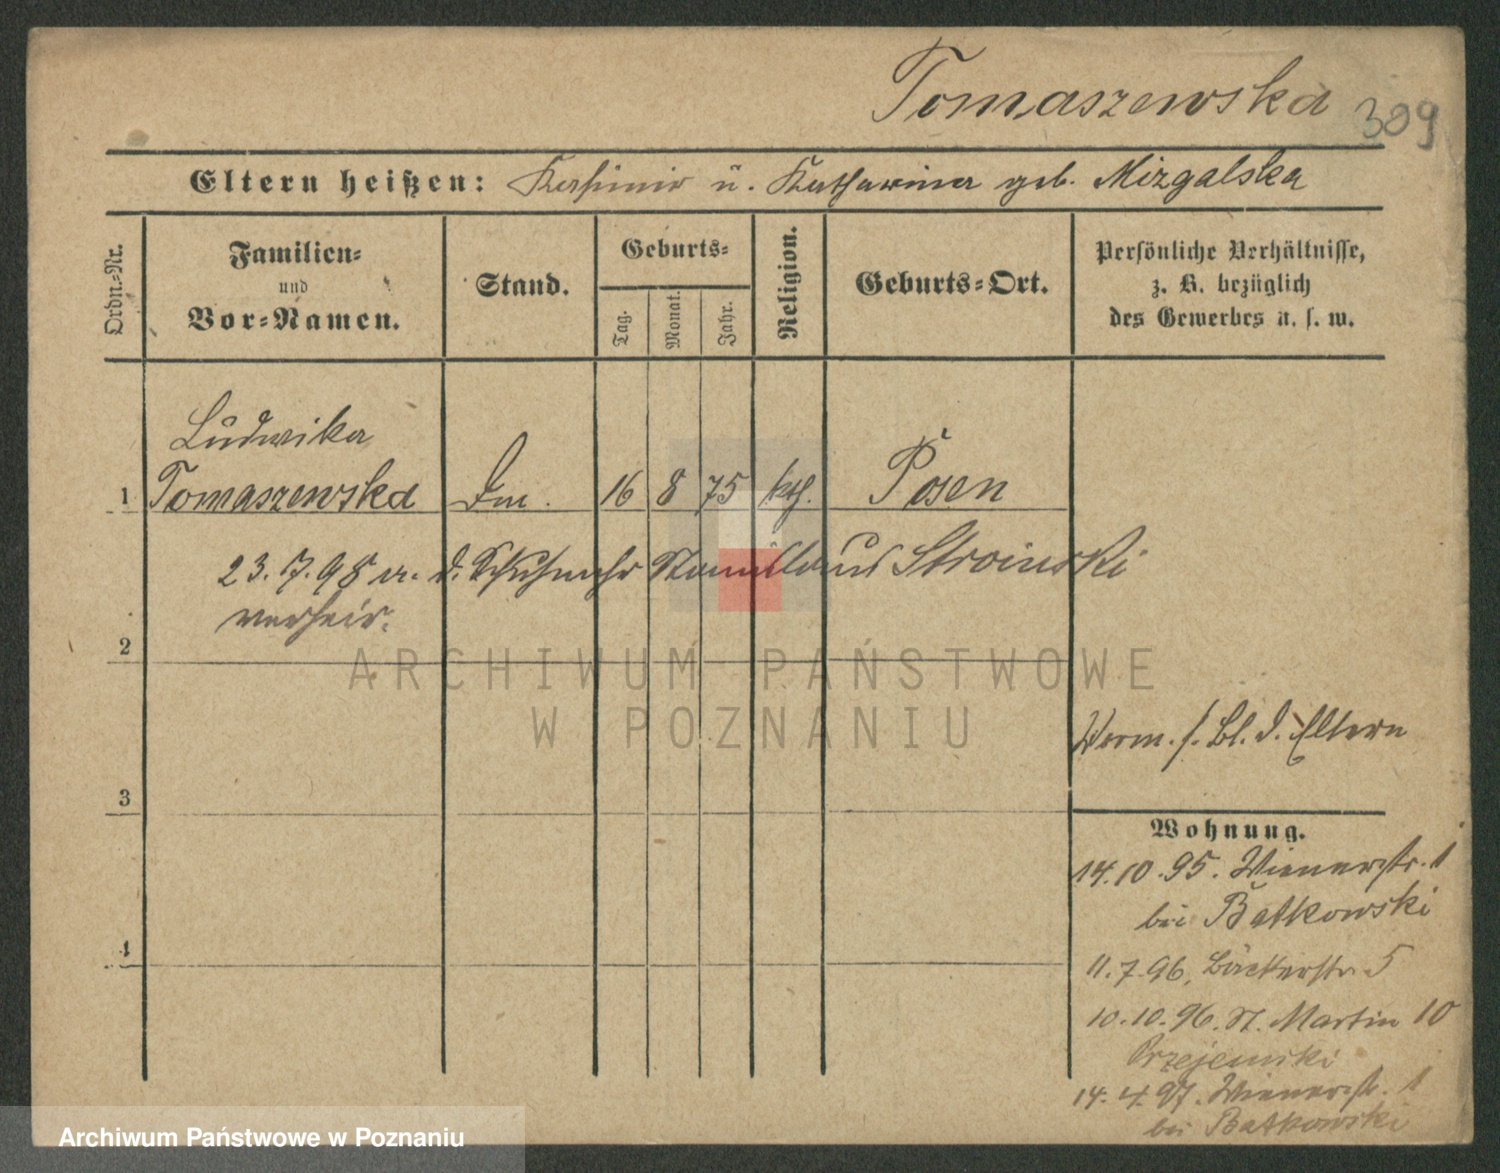 Tomaszewska 309
Eltern heißen: Kasimir u. Katharina geb. Mizgalska
Ordn.-Nr.
Familien-
und
Vor-Namen.
Stand.
Geburts-
Tag.
Monat.
Jahr.
Religion.
Geburts-Ort.
Persönliche Verhältnisse,
z. B. bezüglich
des Gewerbes u. s. w.
Ludwika
1 Tomaszewska 16 8 75 kth. Posen
23.7.98 m. d. Schuhmchr Stanislaus Stroinski
verheir.
2
ARCHIWUM PAŃSTWOWE
W POZNANIU
Vorm. s. Bl. d. Eltern
3
Wohnung.
14.10.95. Wienerstr. 1
bei Batkowski
4
11.7.96. Bäckerstr. 5
10.10.96. St. Martin 10
Przejemski
14.4.97. Wienerstr. 1
bei Batkowski
Archiwum Państwowe w Poznaniu